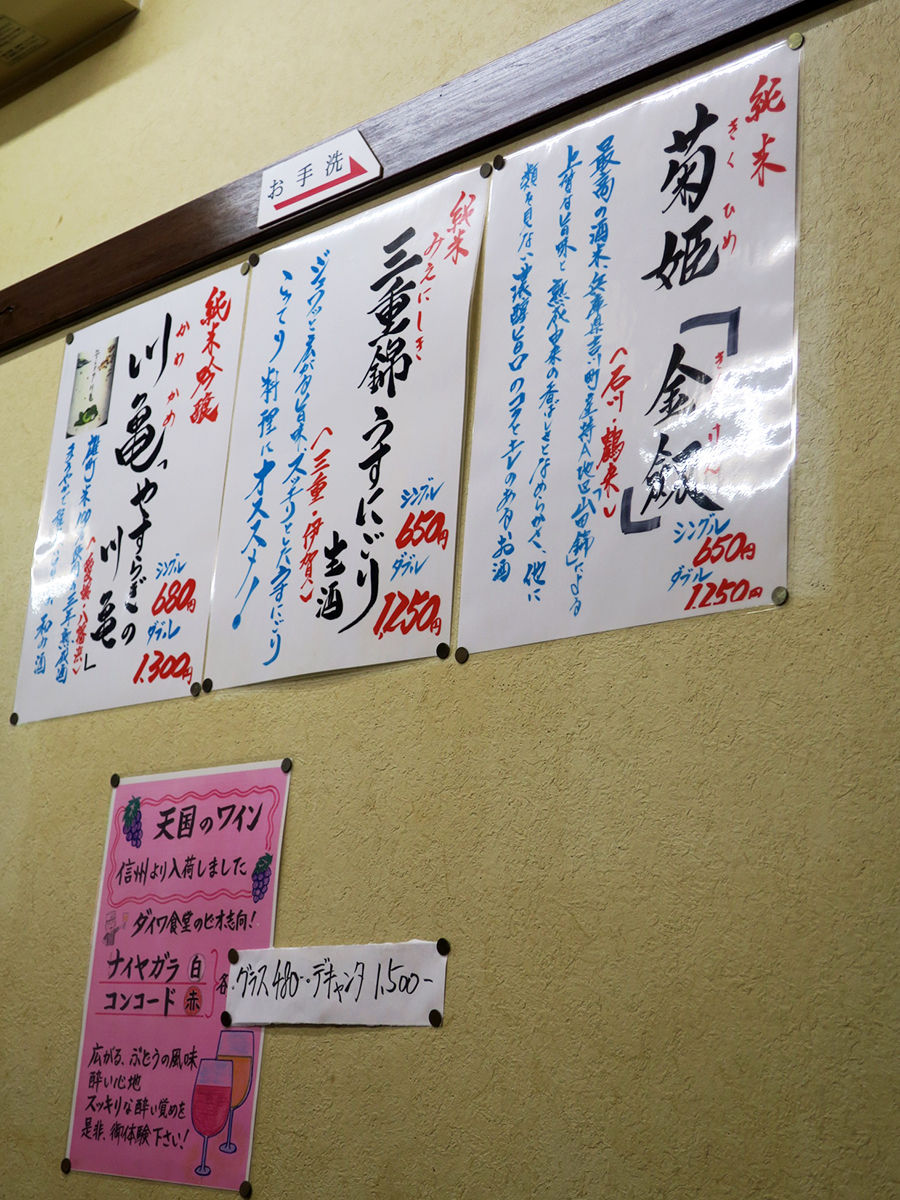 お手洗
純米
きくひめ
菊姫
きんけん
「金劔」
シングル
650円
ダブル
1,250円
(石川・鶴来)
最高の酒米、兵庫県吉川町産特A地区「山田錦」による
上質な旨味と熟成由来の香ばしさとなめらかさ、他に
類を見ない「濃醇旨口」のコクとキレのあるお酒
純米
みえにしき
三重錦 うすにごり
生酒
シングル
650円
ダブル
1,250円
(三重・伊賀)
ジュワッと広がる旨味、スッキリとした守にごり
こってり料理にオススメ!
純米吟醸
かわかめ
川亀「やすらぎの
川亀」
シングル
680円
ダブル
1,300円
(愛媛・八幡浜)
天国のワイン
信州より入荷しました
ダイワ食堂のビオ志向!
ナイヤガラ 白
コンコード 赤
各
グラス480-・デキャンタ 1,500-
広がる、ぶどうの風味
酔い心地
スッキリな酔い覚めを
是非、御体験下さい!